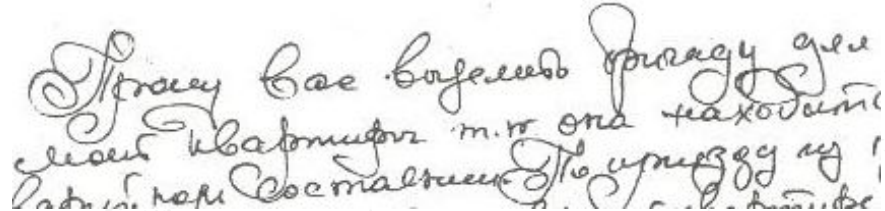 Прошу вас выделить бригаду для
моей квартиры т.к она находит
варийном состаянии. По приезду из
квартире